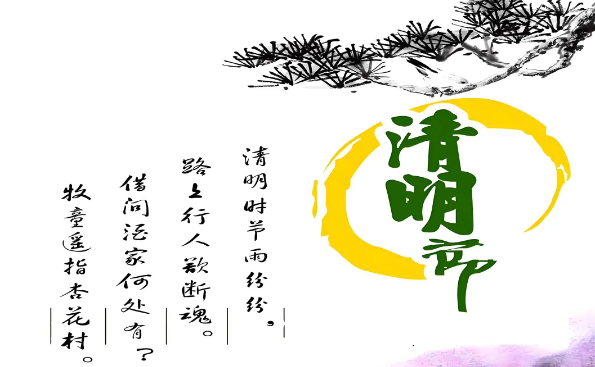 清明节
清明时节雨纷纷，
路上行人欲断魂。
借问酒家何处有？
牧童遥指杏花村。